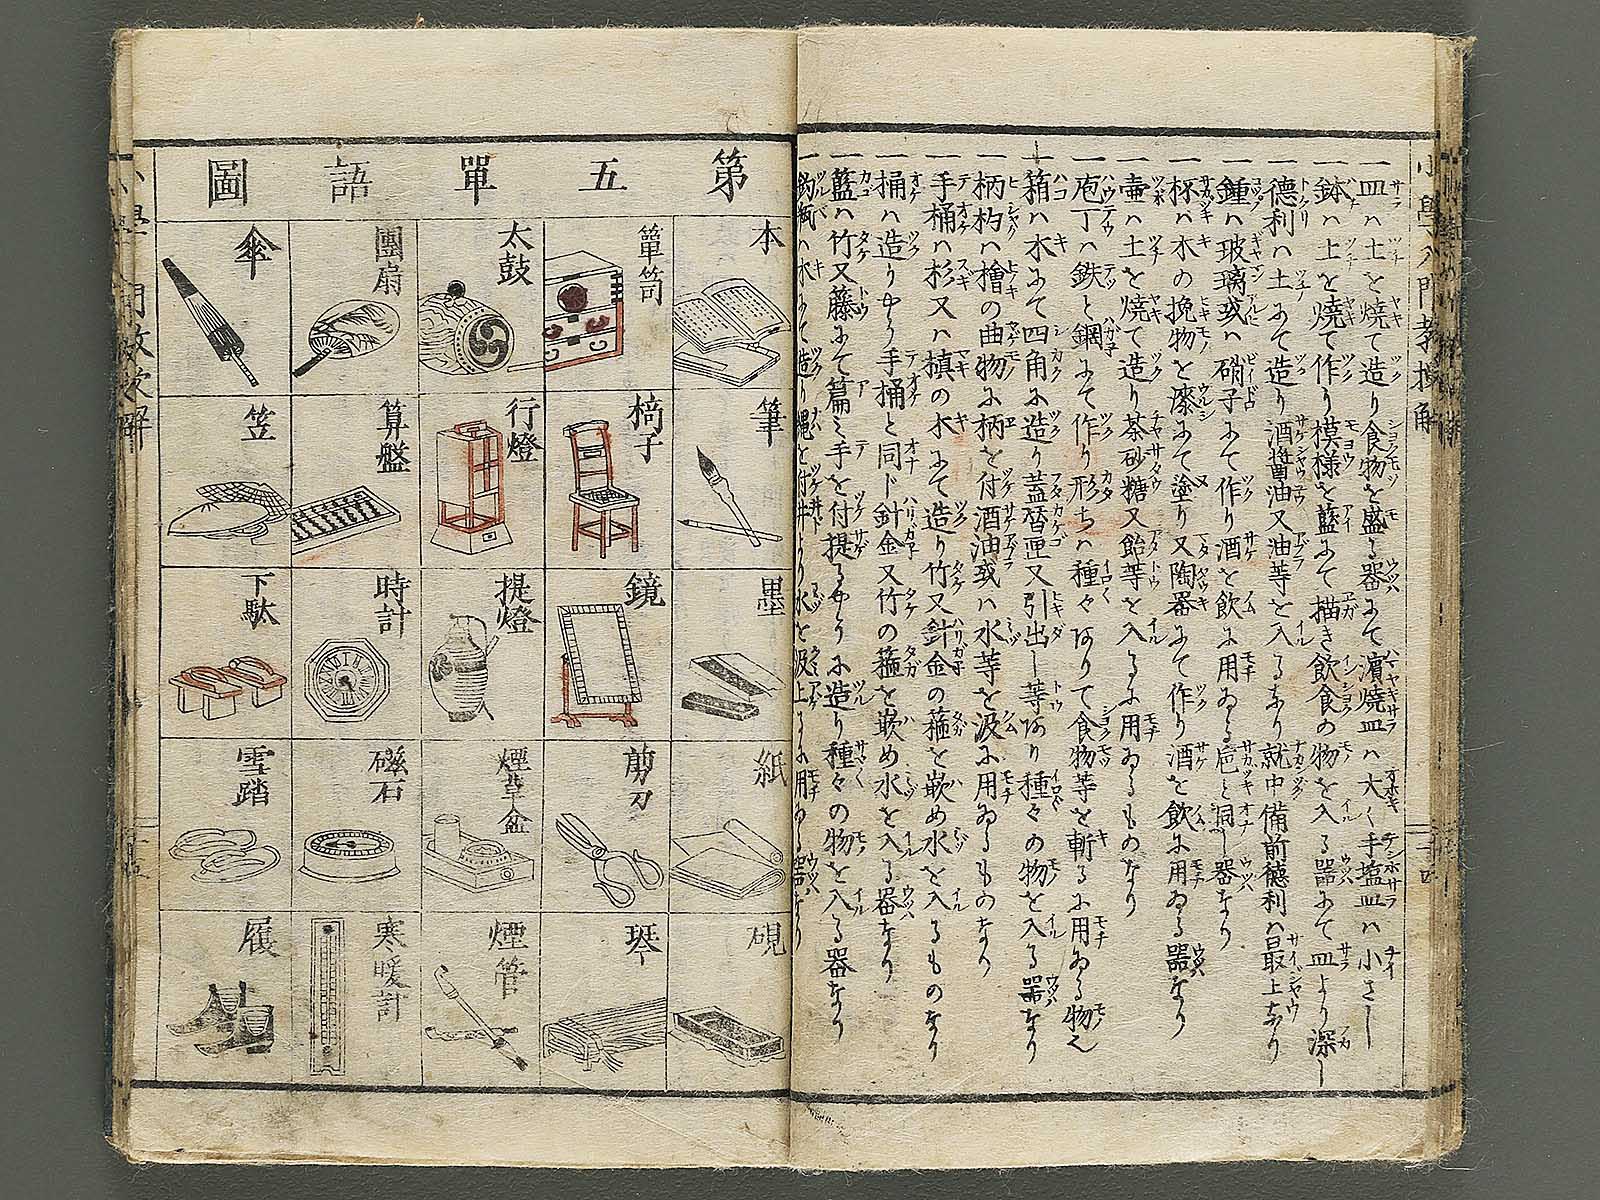 一皿ハ土を焼て造り食物を盛る器にて濱焼皿ハ大く手塩皿ハ小さし
一鉢ハ土を焼て作り模様を藍にて描き飲食の物を入る器にて皿より深し
一德利ハ土にて造り酒醬油又油等を入るなり就中備前德利ハ最上なり
一鍾ハ玻璃或ハ硝子にて作り酒を飲に用ゐる巵と同し器なり
一杯ハ木の挽物を漆にて塗り又陶器にて作り酒を飲に用ゐる器なり
一壷ハ土を焼て造り茶砂糖又飴等を入るに用ゐるものなり
一庖丁ハ鉄と鋼にて作り形ちハ種々ありて食物等を斬るに用ゐる物也
一箱ハ木にて四角に造り蓋匣又引出し等あり種々の物を入る器なり
一柄杓ハ檜の曲物に柄を付酒油或ハ水等を汲に用ゐるものなり
一手桶ハ杉又ハ槙の木にて造り竹又針金の箍を嵌め水を入るものなり
一桶ハ造りやう手桶と同じ針金又竹の箍を嵌め水を入る器なり
一籃ハ竹又藤にて篇ミ手を付提るやうに造り種々の物を入る器なり
一釣瓶ハ木にて造り縄を付井より水を汲上るに用ゐる器なり
第五單語圖
本
筆
墨
紙
硯
簞笥
椅子
鏡
剪刀
琴
太鼓
行燈
提燈
煙草盆
煙管
團扇
算盤
時計
磁石
寒暖計
傘
笠
下駄
雪踏
履